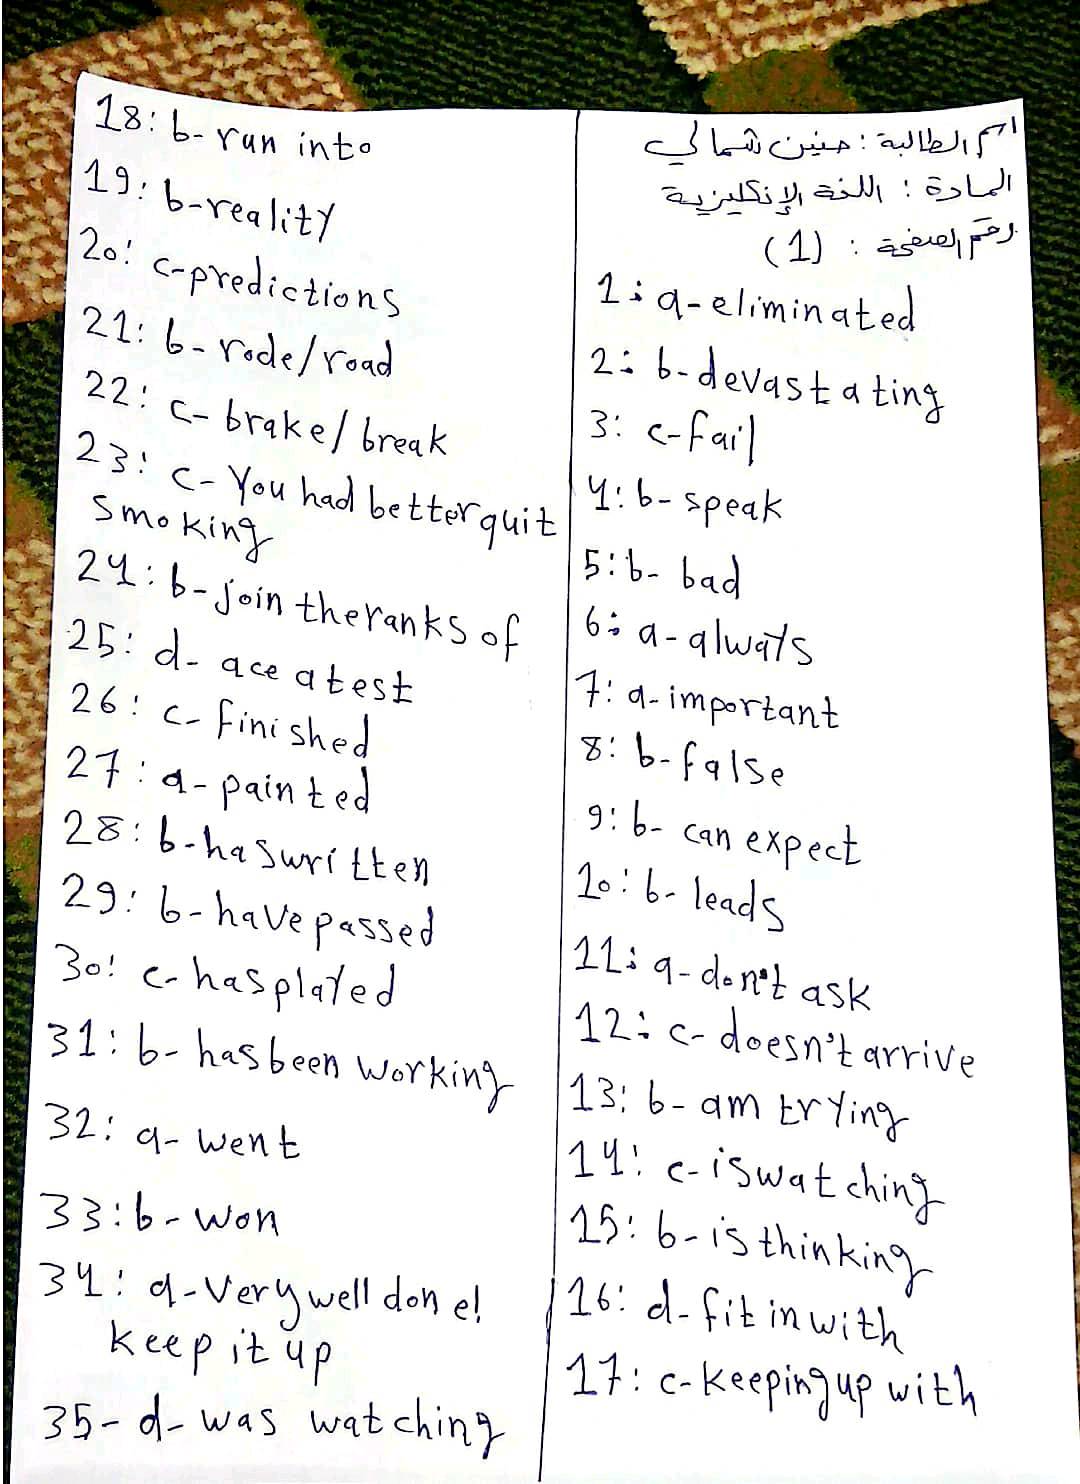 اسم الطالبة : حنين شمالي
المادة : اللغة الإنكليزية
رقم الصفحة : (1)
1: a- eliminated
2: b- devastating
3: c- fail
4: b- speak
5: b- bad
6: a- always
7: a- important
8: b- false
9: b- can expect
10: b- leads
11: a- don't ask
12: c- doesn't arrive
13: b- am trying
14: c- is watching
15: b- is thinking
16: d- fit in with
17: c- keeping up with
18: b- run into
19: b- reality
20: c- predictions
21: b- rode/road
22: c- brake/break
23: c- You had better quit
smoking
24: b- join the ranks of
25: d- ace a test
26: c- finished
27: a- painted
28: b- has written
29: b- have passed
30: c- has played
31: b- has been working
32: a- went
33: b- won
34: a- Very well done!
keep it up
35- d- was watching